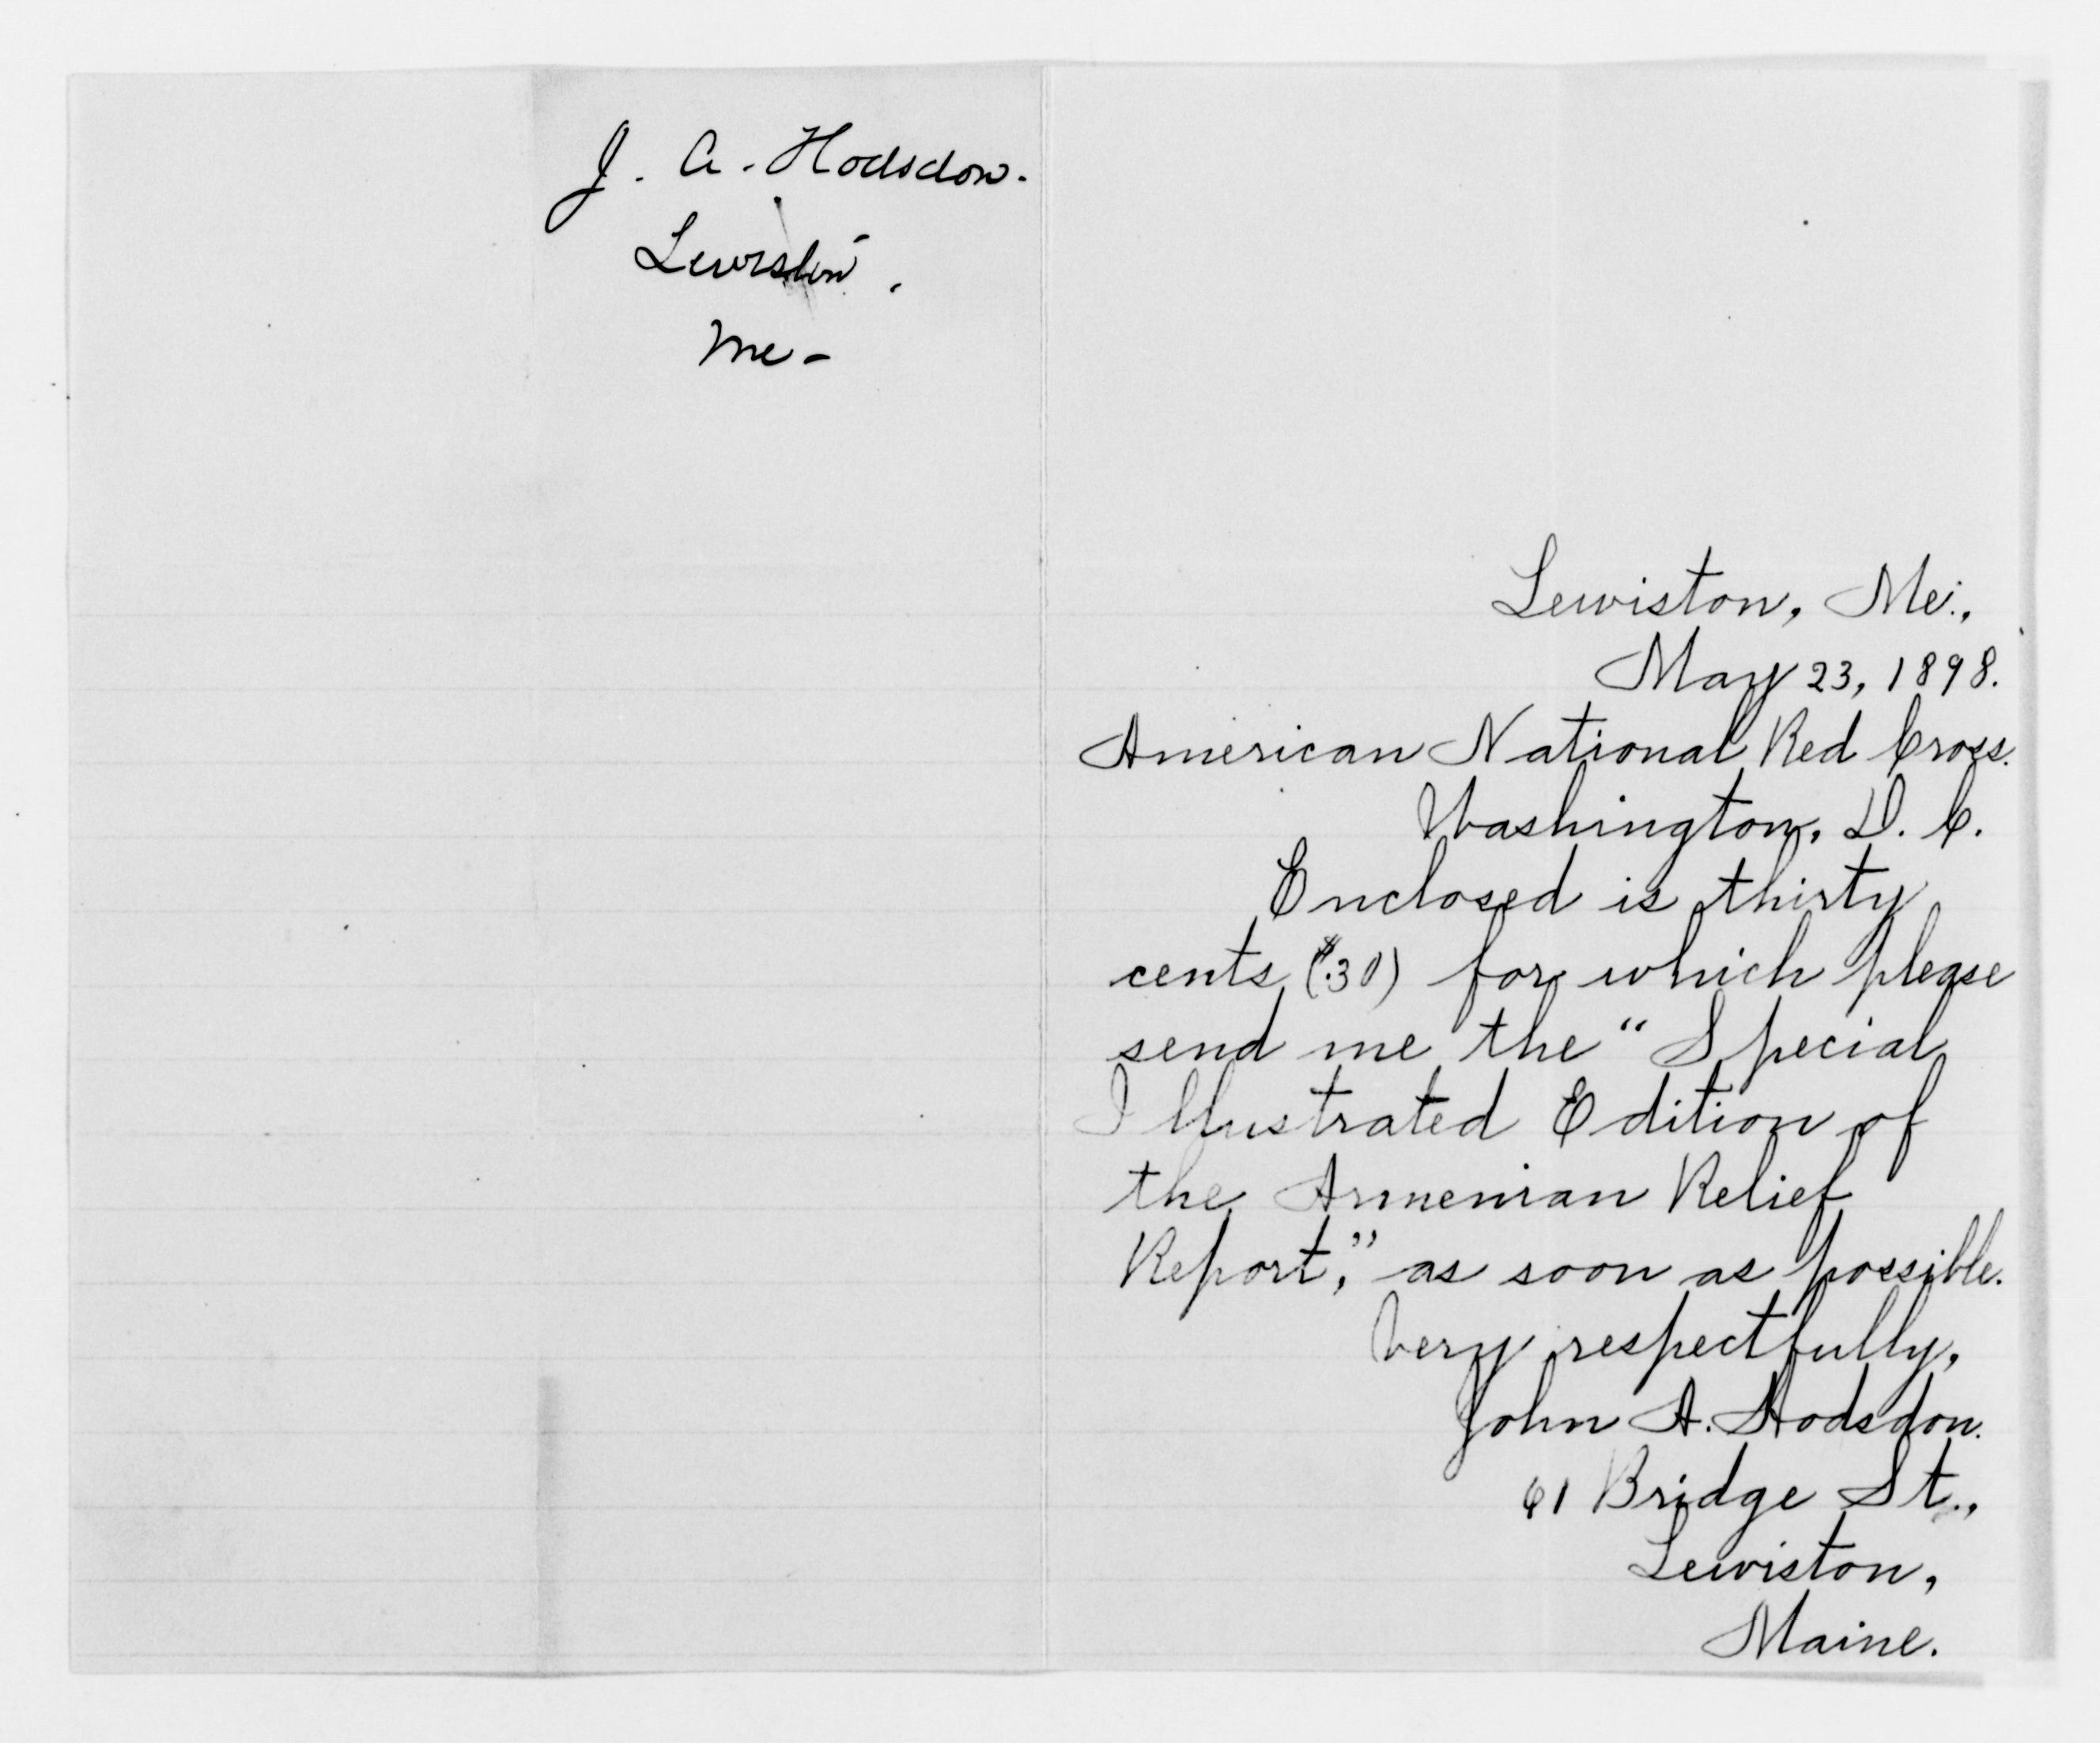 J. A. Hodsdon.
Lewiston,
Me-
Lewiston, Me.,
May 23, 1898.
American National Red Cross.
Washington, D. C.
Enclosed is thirty
cents ($.30) for which please
send me the "Special
Illustrated Edition of
the Armenian Relief
Report," as soon as possible.
Very respectfully,
John A. Hodsdon.
61 Bridge St.,
Lewiston,
Maine.